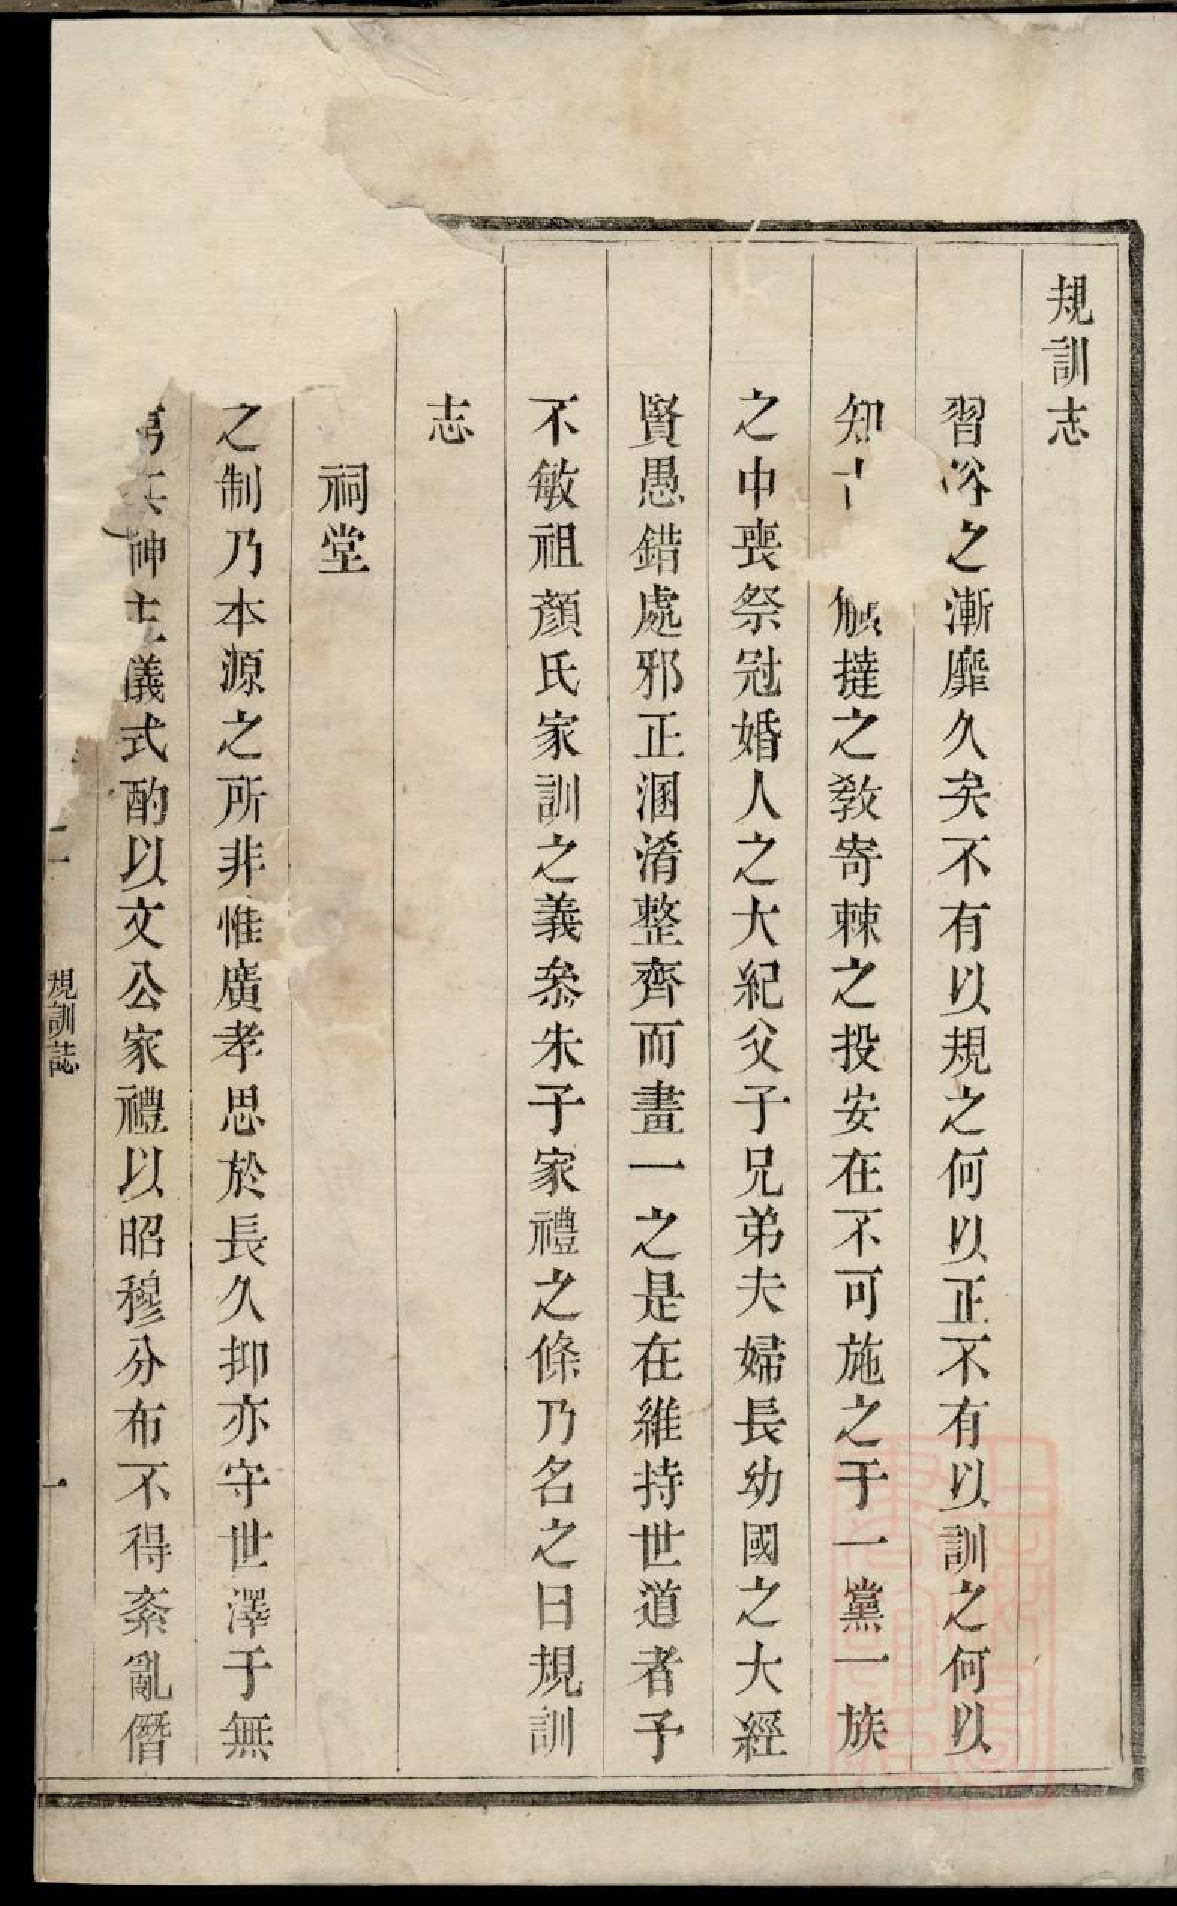 規訓志
習俗之漸靡久矣不有以規之何以正不有以訓之何以
知撻之教寄棘之投安在不可施之于一黨一族
之中喪祭冠婚人之大紀父子兄弟夫婦長幼國之大經
賢愚錯處邪正溷淆整齊而畫一之是在維持世道者予
不敏祖顏氏家訓之義叅朱子家禮之條乃名之曰規訓
志
祠堂
之制乃本源之所非惟廣孝思於長久抑亦守世澤于無
神主儀式酌以文公家禮以昭穆分布不得紊亂僭
規訓誌
一